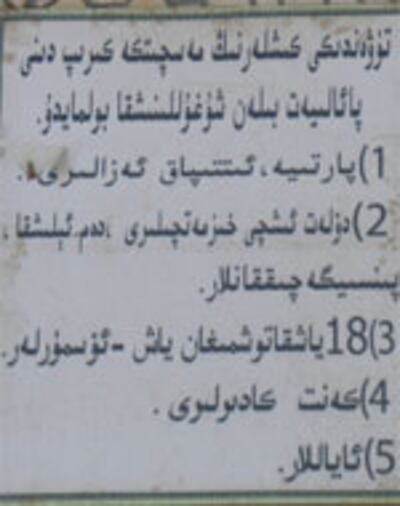 تۆۋەندىكى كىشىلەرنىڭ مەسچىتكە كىرىپ دىنى
پائالىيەت بىلەن شۇغۇللىنىشقا بولمايدۇ.
1)پارتىيە، ئىتتىپاق ئەزالىرى.
2)دۆلەت ئىشچى خىزمەتچىلىرى ،دەم ئېلىشقا ،
پىنسىيگە چىققانلار.
3)18ياشقاتوشمىغان ياش -ئۆسمۈرلەر.
4)كەنت كادىولىوى .
5)ئاياللار.